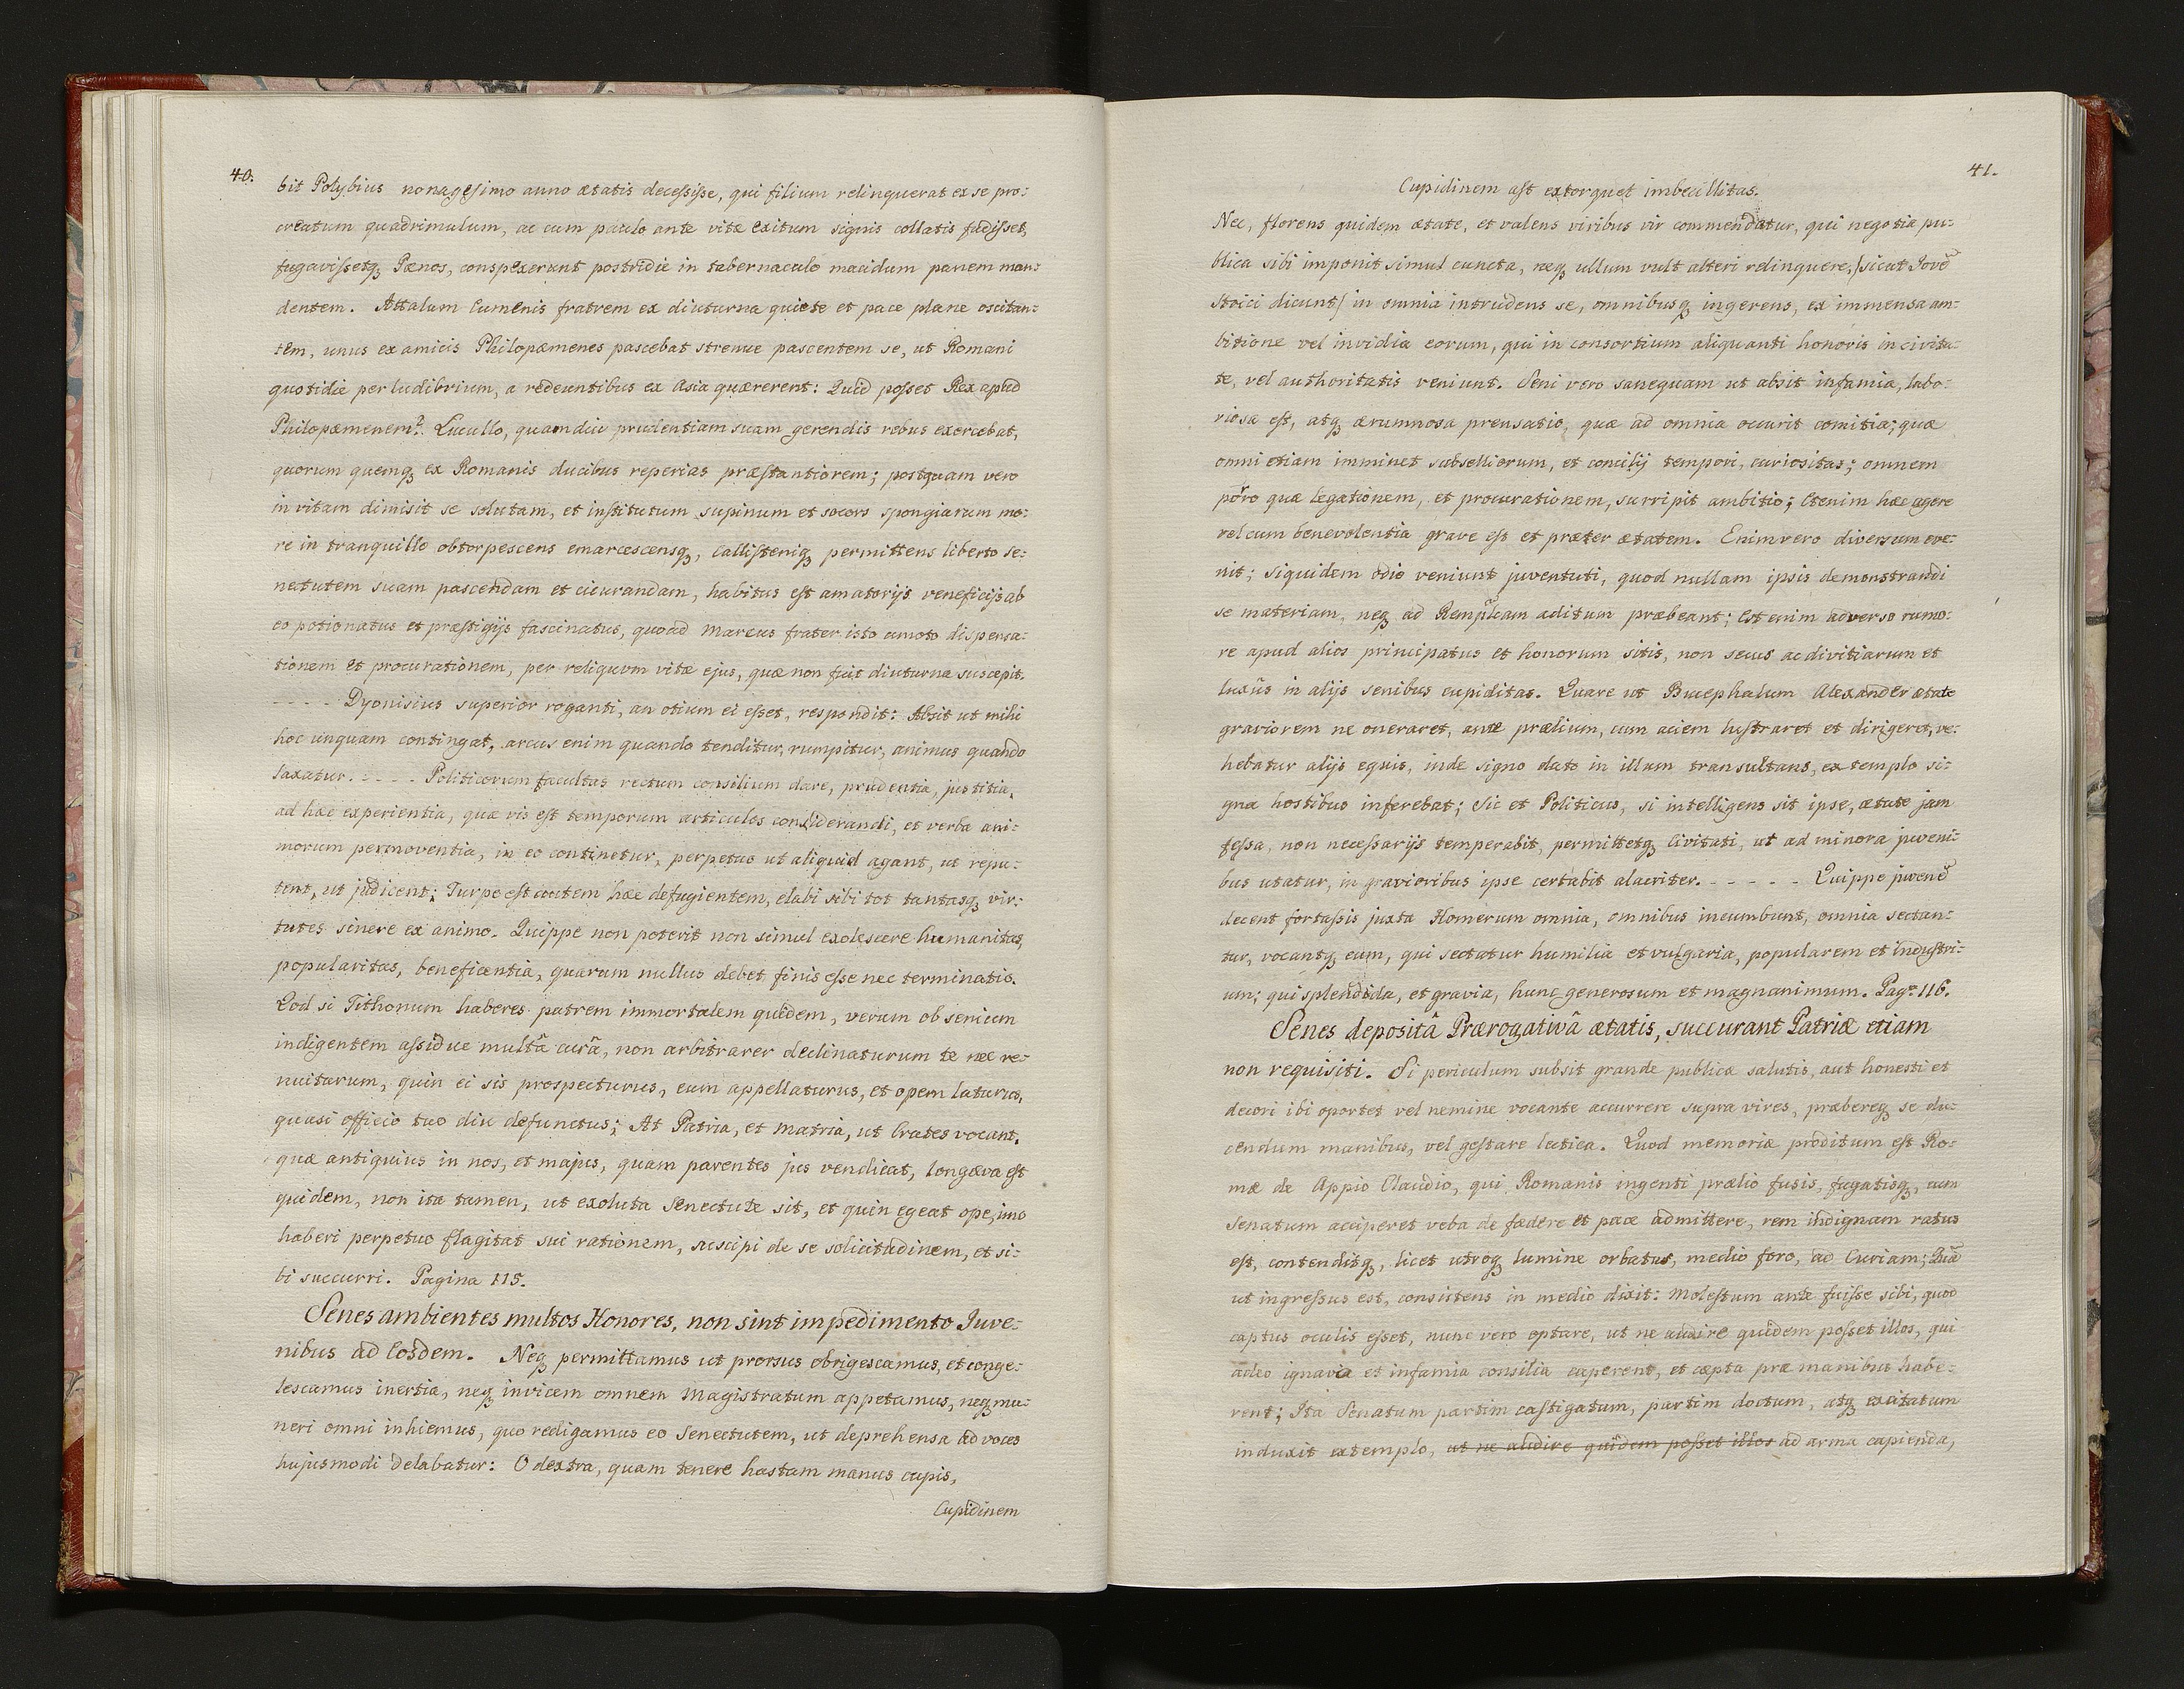 40.
bit Polybius nonagesimo anno ætatis decessisse, qui filium relinquerat ex se pro:
creatum quadrimulum, ac cum paulo ante vitæ exitum signis collatis fudisset,
fugavissetq₃ Pœnos, conspexerunt postridie in tabernaculo macidum panem man:
dentem. Attalum Eumenis fratrem ex diuturna quiete et pace plane oscitan:
tem, unus ex amicis Philopæmenes pascebat strenue pascentem se, ut Romani
quotidie per ludibrium, a redeuntibus ex Asia quærerent: Quid posset Rex apud
Philopæmenem? Lucullo, quamdiu prudentiam suam gerendis rebus exercebat,
quorum quemq₃ ex Romanis ducibus reperias præstantiorem; postquam vero
in vitam dimisit se solutam, et institutum supinum et socors spongiarum mo:
re in tranquillo obtorpescens emarcescensq₃, Callistenig₃ permittens liberto se:
nectutem suam pascendam et cicurandam, habitus est amatorijs veneficijs ab
eo potionatus et præstigijs fascinatus, quoad Marcus frater isto amoto dispensa:
tionem et procurationem, per reliquum vitæ ejus, quæ non fuit diuturna suscepit.
- - - - Dyonisius superior roganti, an otium ei esset, respondit: Absit ut mihi
hoc unquam contingat, arcus enim quando tenditur, rumpitur, animus quando
laxatur. - - - - Politicorum facultas rectum consilium dare, prudentia, justitia,
ad hæc experientia, quæ vis est temporum articulos considerandi, et verba ani:
morum permoventia, in eo continetur, perpetuo ut aliquid agant, ut repu:
tent, ut judicent; Turpe est autem hæc defugientem, elabi sibi tot tantasq₃ vir:
tutes sinere ex animo. Quippe non poterit non simul exolescere humanitas,
popularitas, beneficentia, quarum nullus debet finis esse nec terminatio.
Qod si Tithonum haberes patrem immortalem quidem, verum ob senium
indigentem assidue multâ curâ, non arbitrarer declinaturum te nec re:
nuiturum, quin ei sis prospecturus, eum appellaturus, et opem laturus,
quasi officio tuo diu defunctus; At Patria, et Matria, ut Crates vocant,
quæ antiquius in nos, et majus, quam parentes jus vendicat, longæva est
quidem, non ita tamen, ut exoluta Senectute sit, et quin egeat ope, imo
haberi perpetuo flagitat sui rationem, suscipi de se solicitudinem, et si:
bi succurri. Pagina 115.
Senes ambientes multos Honores, non sint impedimento Juve:
nibus ad Eosdem. Neq₃ permittamus ut prorsus obrigescamus, et conge:
lescamus inertia, neq₃ invicem omnem Magistratum appetamus, neq₃ mu:
neri omni inhiemus, quo redigamus eo Senectutem, ut deprehensa ad voces
hujusmodi delabatur: O dextra, quam tenere hastam manus cupis,
Cupidinem
41.
Cupidinem ast extorquet imbecillitas.
Nec, florens quidem ætate, et valens viribus vir commendatur, qui negotia pu:
blica sibi imponit simul cuncta, neq₃ ullum vult alteri relinquere, /sicut Jovē
Stoici dicunt/ in omnia intrudens se, omnibusq₃ ingerens, ex immensa am:
bitione vel invidia eorum, qui in consortium aliquanti honoris in civita:
te, vel authoritatis veniunt. Seni vero sanequam ut absit infamia, labo:
riosa est, atq₃ ærumnosa prensatio, quæ ad omnia occurit comitia; quæ
omni etiam imminet subselliorum, et concilij tempori, curiositas; omnem
porro quæ legationem, et procurationem, surripit ambitio; Etenim hæc agere
vel cum benevolentia grave est et præter ætatem. Enimvero diversum eve:
nit; siquidem odio veniunt juventuti, quod nullam ipsis demonstrandi
se materiam, neq₃ ad Rempl̃cam aditum præbeant; Est enim adverso rumo:
re apud alios principatus et honorum sitis, non secus ac divitiarum et
luxûs in alijs senibus cupiditas. Quare ut Bucephalum Alexander ætate
graviorem ne oneraret, ante prælium, cum aciem lustraret et dirigeret, ve:
hebatur alijs equis, inde signo dato in illum transultans, extemplo si:
gna hostibus inferebat; Sic et Politicus, si intelligens sit ipse, ætate jam
fessa, non necessarijs temperabit, permittetq₃ Civitati, ut ad minora juveni:
bus utatur, in gravioribus ipse certabit alacriter. - - - - - Quippe juvenē
decent fortassis juxta Homerum omnia, omnibus incumbunt, omnia sectan:
tur, vocantq₃ eum, qui sectatur humilia et vulgaria, popularem et industri:
um; qui splendida, et gravia, hunc generosum et magnanimum. Pagᵃ 116.
Senes depositâ Prærogativâ ætatis, succurant Patriæ etiam
non requisiti. Si periculum subsit grande publicæ salutis, aut honesti et
decori ibi oportet vel nemine vocante accurrere supra vires, præbereq₃ se du:
cendum manibus, vel gestare lectica. Quod memoriæ proditum est Ro:
mæ de Appio Claudio, qui Romanis ingenti prælio fusis, fugatisq₃, cum
Senatum acciperet veba de fædere et pace admittere, rem indignam ratus
est, contenditq₃, licet utroq₃ lumine orbatus, medio foro, ad Curiam; Quā
ut ingressus est, consistens in medio dixit: Molestum ante fuisse sibi, quod
captus oculis esset, nunc vero optare, ut ne audire quidem posset illos, qui
adeo ignavia et infamia consilia caperent, et cæpta præ manibus habe:
rent; Ita Senatum partim castigatum, partim doctum, atq₃ excitatum
induxit extemplo, ut ne audire quidem posset illos ad arma capienda,